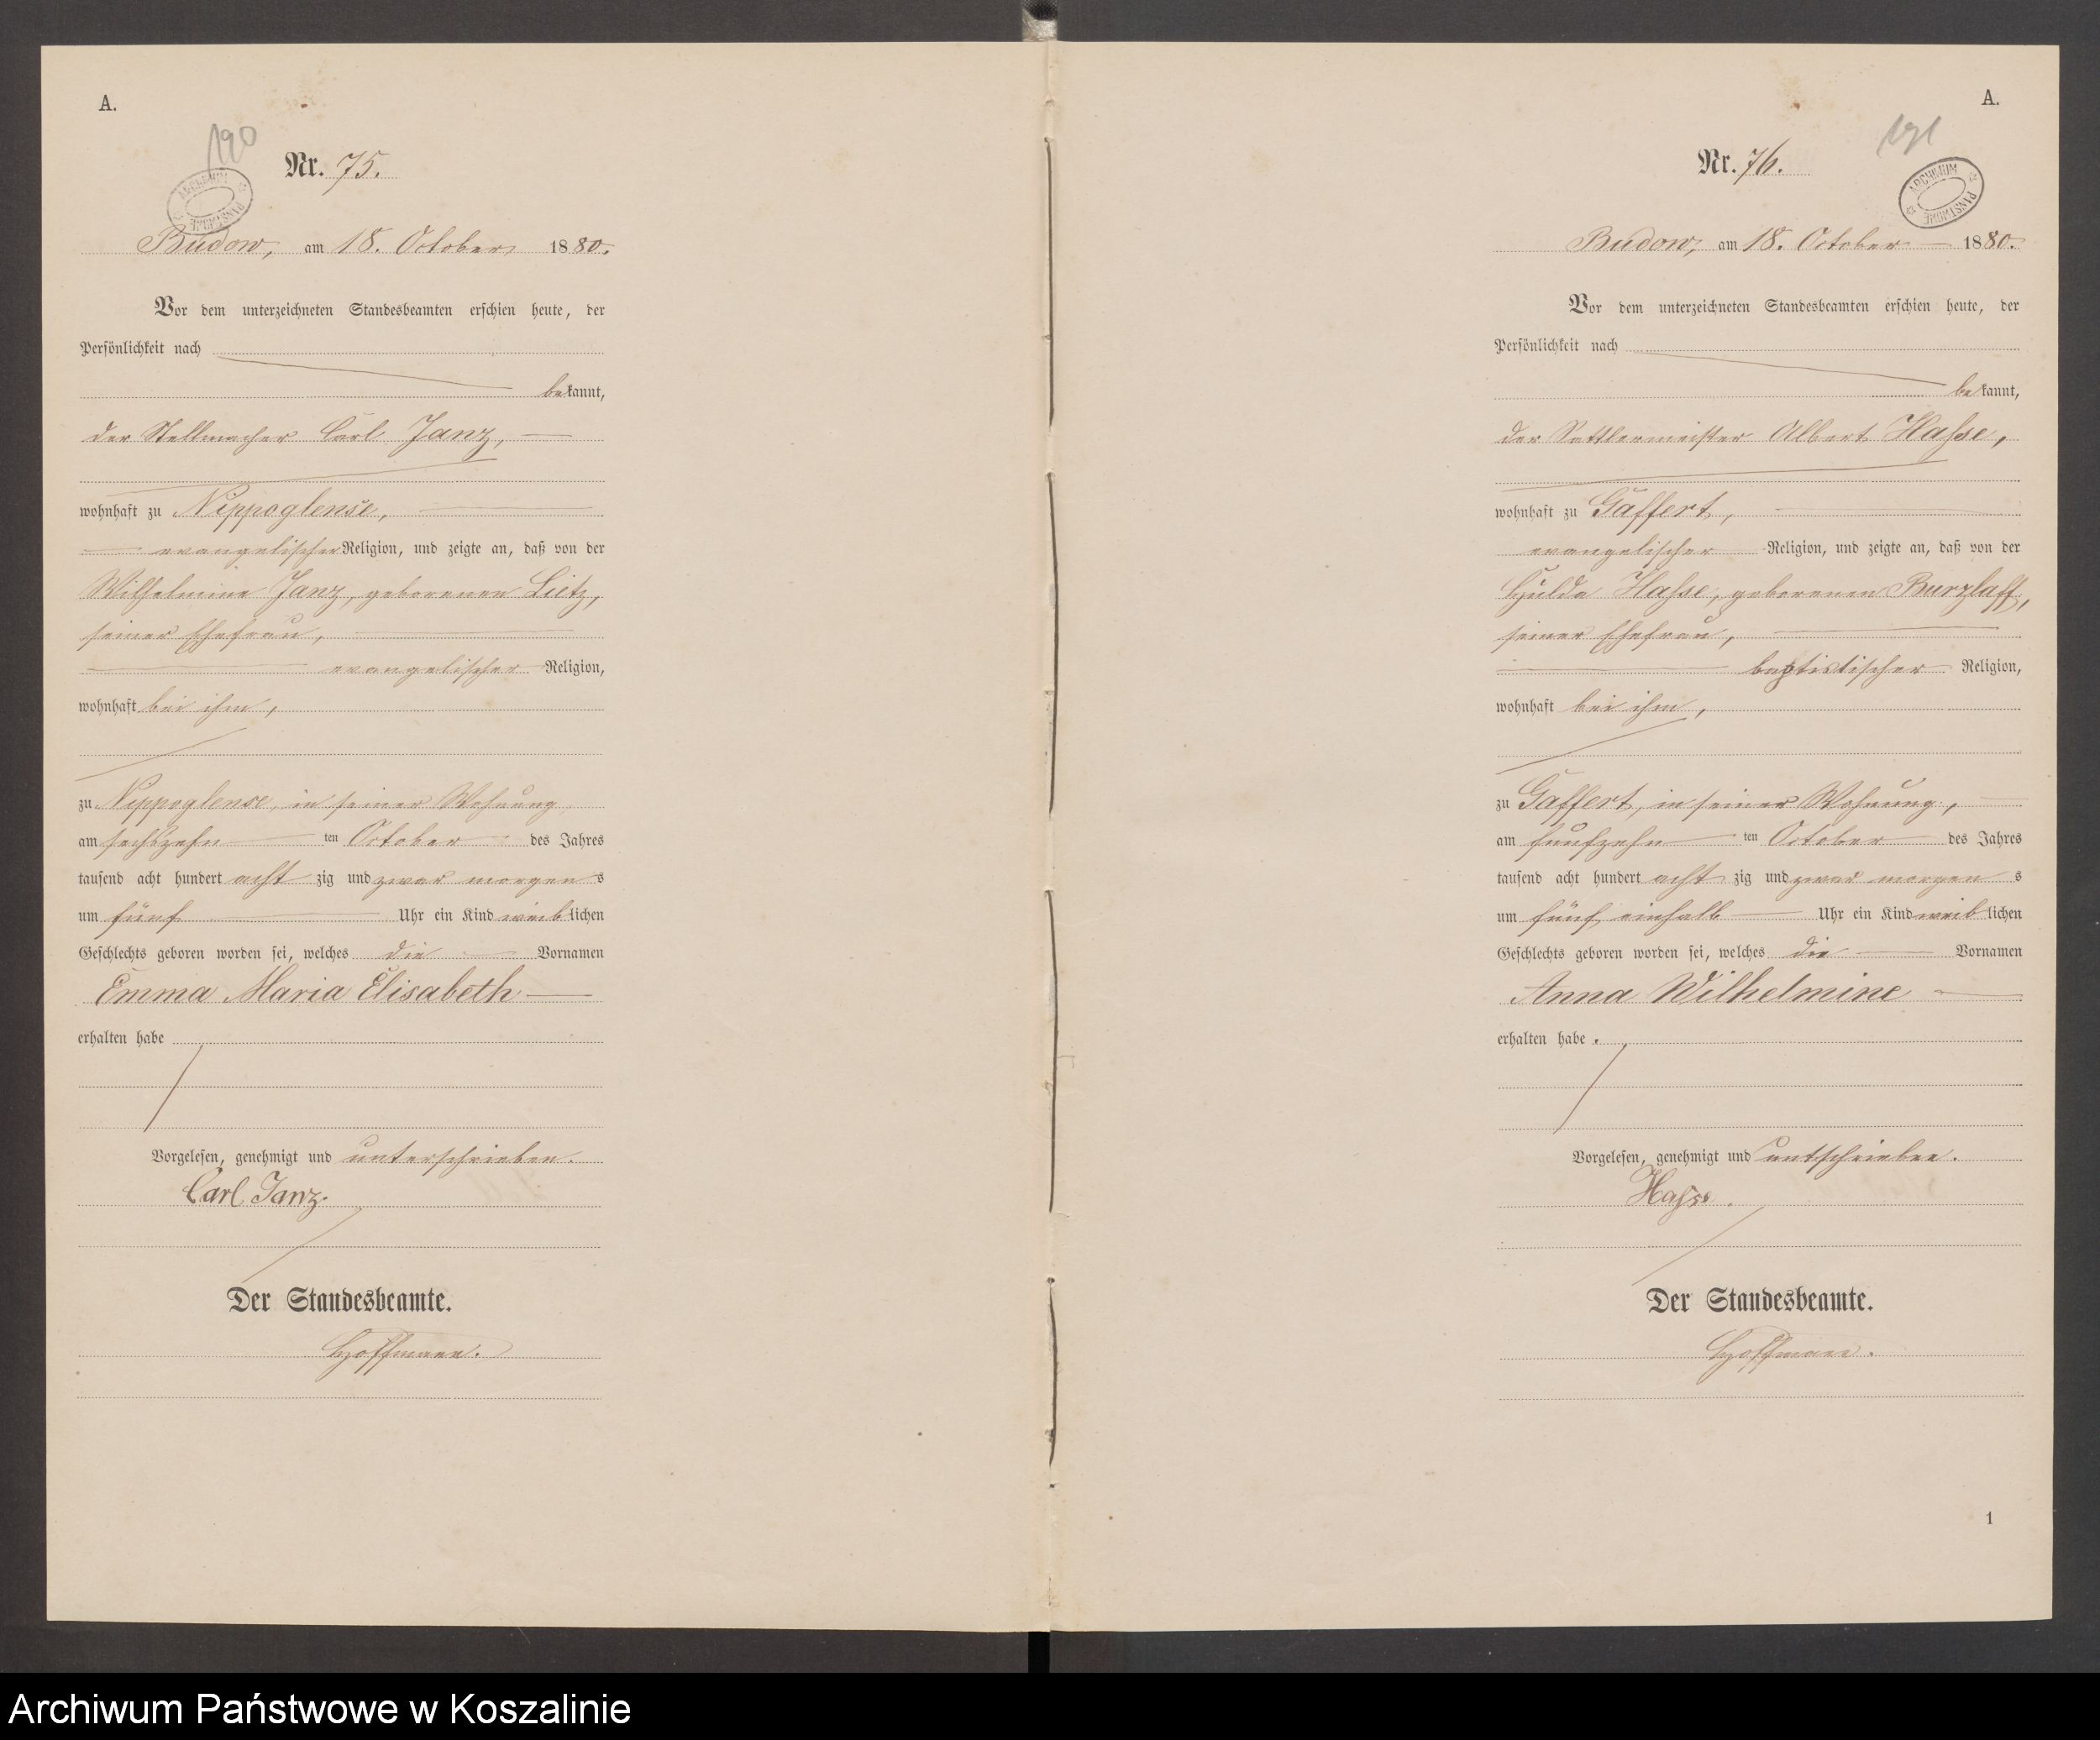 A.
190
Nr. 75.
ARCHIWUM PAŃSTWOWE
Budow, am 18. October 1880.
Vor dem unterzeichneten Standesbeamten erschien heute, der
Persönlichkeit nach
bekannt,
der Stellmacher Carl Janz,
wohnhaft zu Nippoglense,
evangelischer Religion, und zeigte an, daß von der
Wilhelmine Janz, geborenen Lietz,
seiner Ehefrau,
evangelischer Religion,
wohnhaft bei ihm,
zu Nippoglense, in seiner Wohnung,
am sechszehn ten October des Jahres
tausend acht hundert acht zig und zwar morgens
um fünf Uhr ein Kind weiblichen
Geschlechts geboren worden sei, welches die Vornamen
Emma Maria Elisabeth
erhalten habe
Vorgelesen, genehmigt und unterschrieben.
Carl Janz.
Der Standesbeamte.
Hoffmann.
A.
191
Nr. 76.
ARCHIWUM PAŃSTWOWE
Budow, am 18. October 1880.
Vor dem unterzeichneten Standesbeamten erschien heute, der
Persönlichkeit nach
bekannt,
der Sattlermeister Albert Hasse,
wohnhaft zu Gaffert,
evangelischer Religion, und zeigte an, daß von der
Hulda Hasse, geborenen Burzlaff,
seiner Ehefrau,
baptistischer Religion,
wohnhaft bei ihm,
zu Gaffert, in seiner Wohnung,
am funfzehn ten October des Jahres
tausend acht hundert acht zig und zwar morgens
um fünf einhalb Uhr ein Kind weiblichen
Geschlechts geboren worden sei, welches die Vornamen
Anna Wilhelmine
erhalten habe.
Vorgelesen, genehmigt und untschrieben.
Hasse.
Der Standesbeamte.
Hoffmann.
1
Archiwum Państwowe w Koszalinie